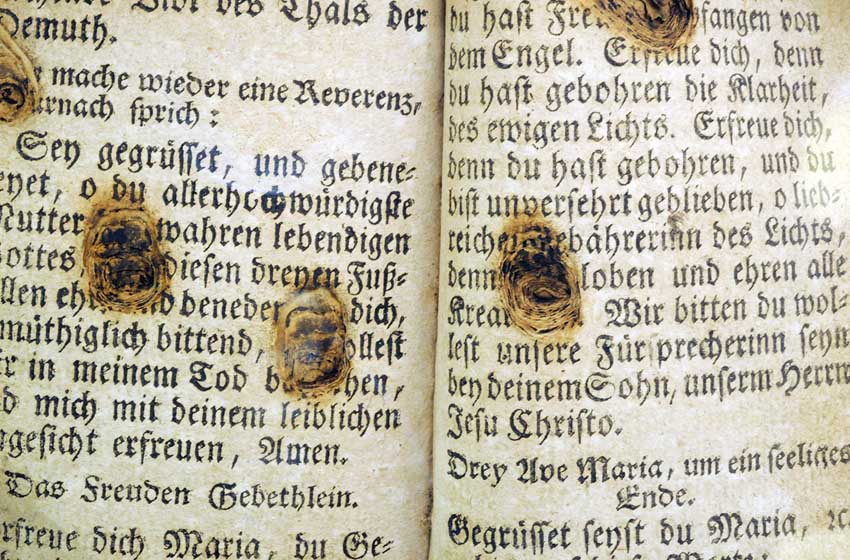 Bitt des Thals der
Demuth.
mache wieder eine Reverenz,
Darnach sprich:
Sey gegrüsset, und gebene-
eyet, o du allerhochwürdigste
Mutter wahren lebendigen
Gottes diesen dreyen Fuß-
llen eh d benede dich,
müthiglich bittend, ollest
r in meinem Tod b hen,
d mich mit deinem leiblichen
ngesicht erfreuen, Amen.
Das Freuden Gebethlein.
rfreue dich Maria, du Ge-
du hast Fre pfangen von
dem Engel. Erfreue dich, denn
du hast gebohren die Klarheit,
des ewigen Lichts. Erfreue dich,
denn du hast gebohren, und du
bist unversehrt geblieben, o lieb-
reiche Gebährerinn des Lichts,
denn loben und ehren alle
Krea Wir bitten du wol-
lest unsere Fürsprecherinn seyn
bey deinem Sohn, unserm Herrn
Jesu Christo.
Drey Ave Maria, um ein seeliges
Ende.
Gegrüsset seyst du Maria, ꝛc.